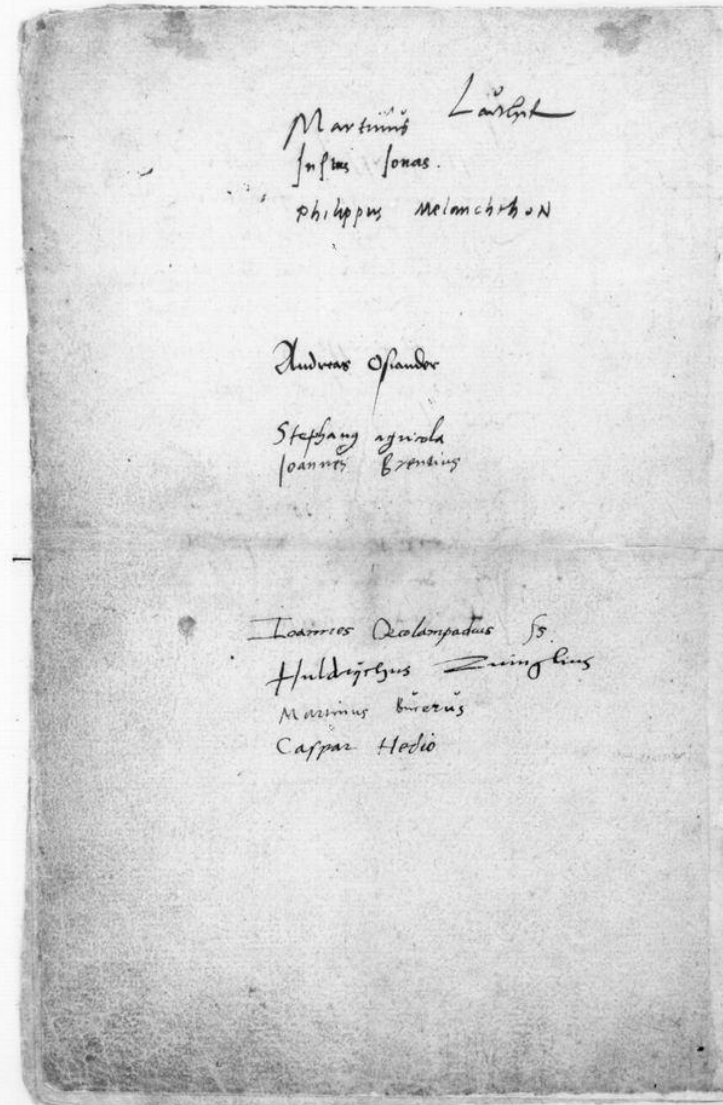 Martinus Luther
Justus Jonas.
Philippus Melanchthon
Andreas Osiander
Stephanus agricola
Joannes Brentius
Ioannes Oecolampadius ss.
Huldrychus Zuinglius
Martinus Bucerus
Caspar Hedio